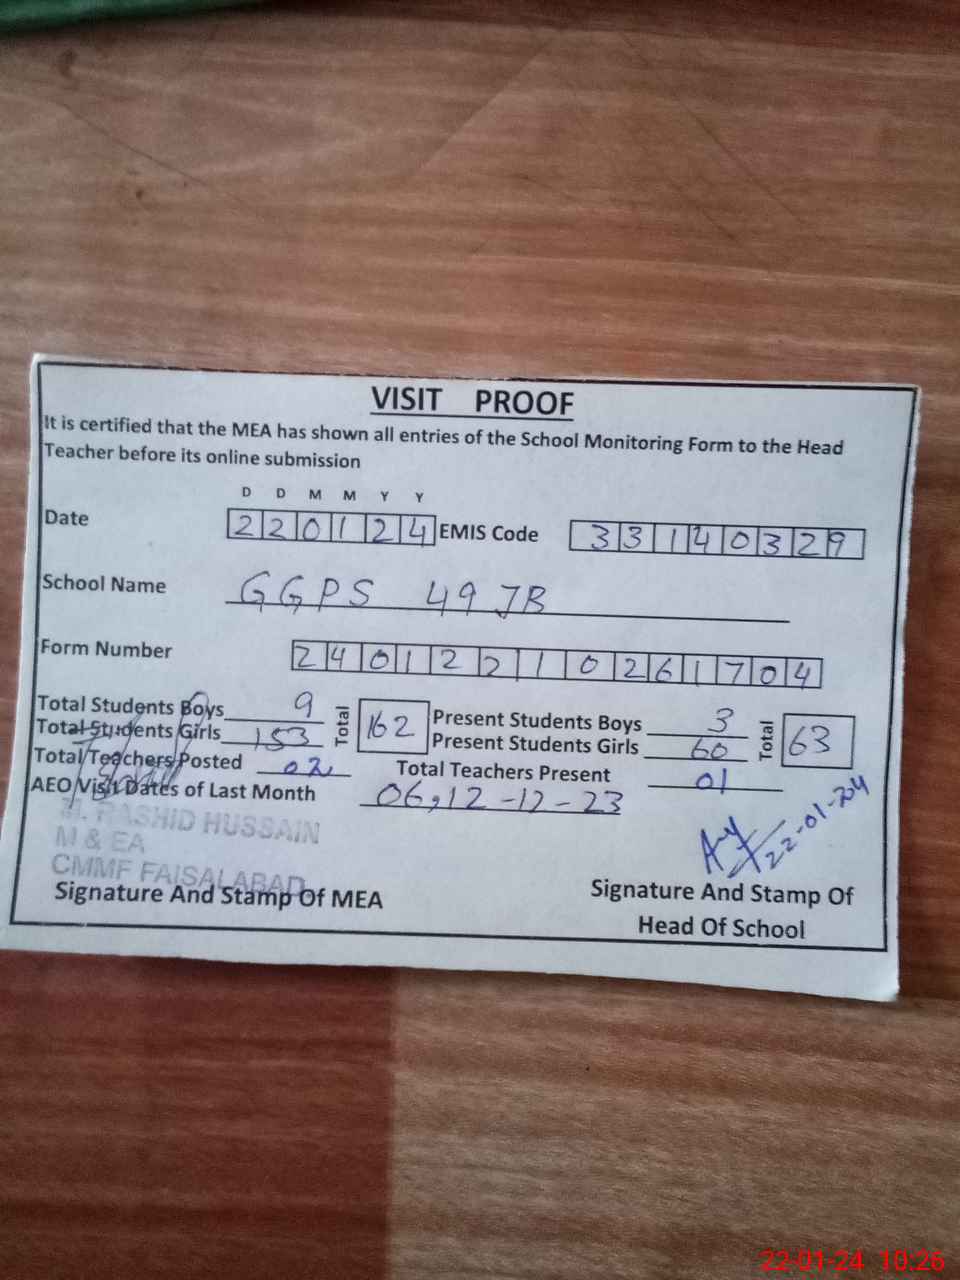 VISIT PROOF
It is certified that the MEA has shown all entries of the School Monitoring Form to the Head
Teacher before its online submission
D D M M Y Y
Date 220124 EMIS Code 33140329
School Name GGPS 49 JB
Form Number 24012210261704
Total Students Boys 9 Total 162 Present Students Boys 3 Total 63
Total Students Girls 153 Present Students Girls 60
Total Teachers Posted 02 Total Teachers Present 01
AEO Visit Dates of Last Month 06,12-12-23
22-01-204
M. RASHID HUSSAIN
M & EA
CMMF FAISALABAD
Signature And Stamp Of MEA Signature And Stamp Of
Head Of School
22-01-24 10:26